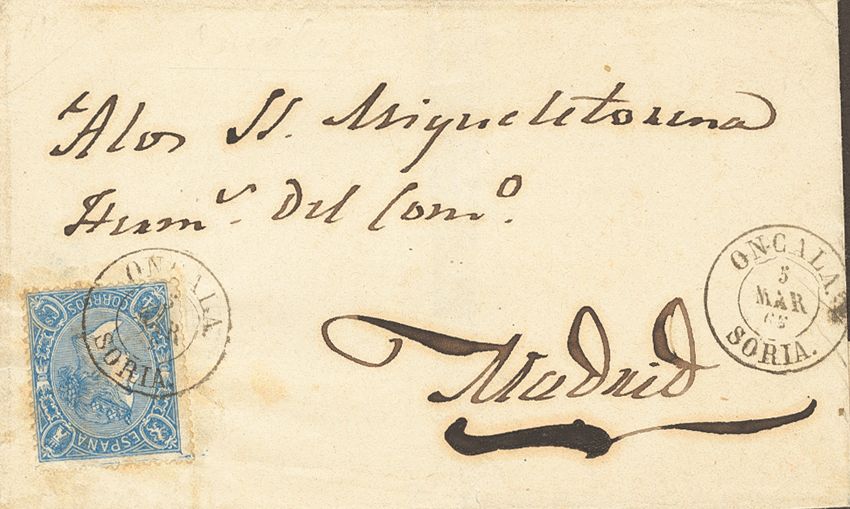 A los SS. Migueletorena
Herm.s Del Com.o
Madrid
ONCALA.
5
MAR
65
SORIA.
ONCALA
5
MAR
SORIA.
CORREOS
ESPAÑA